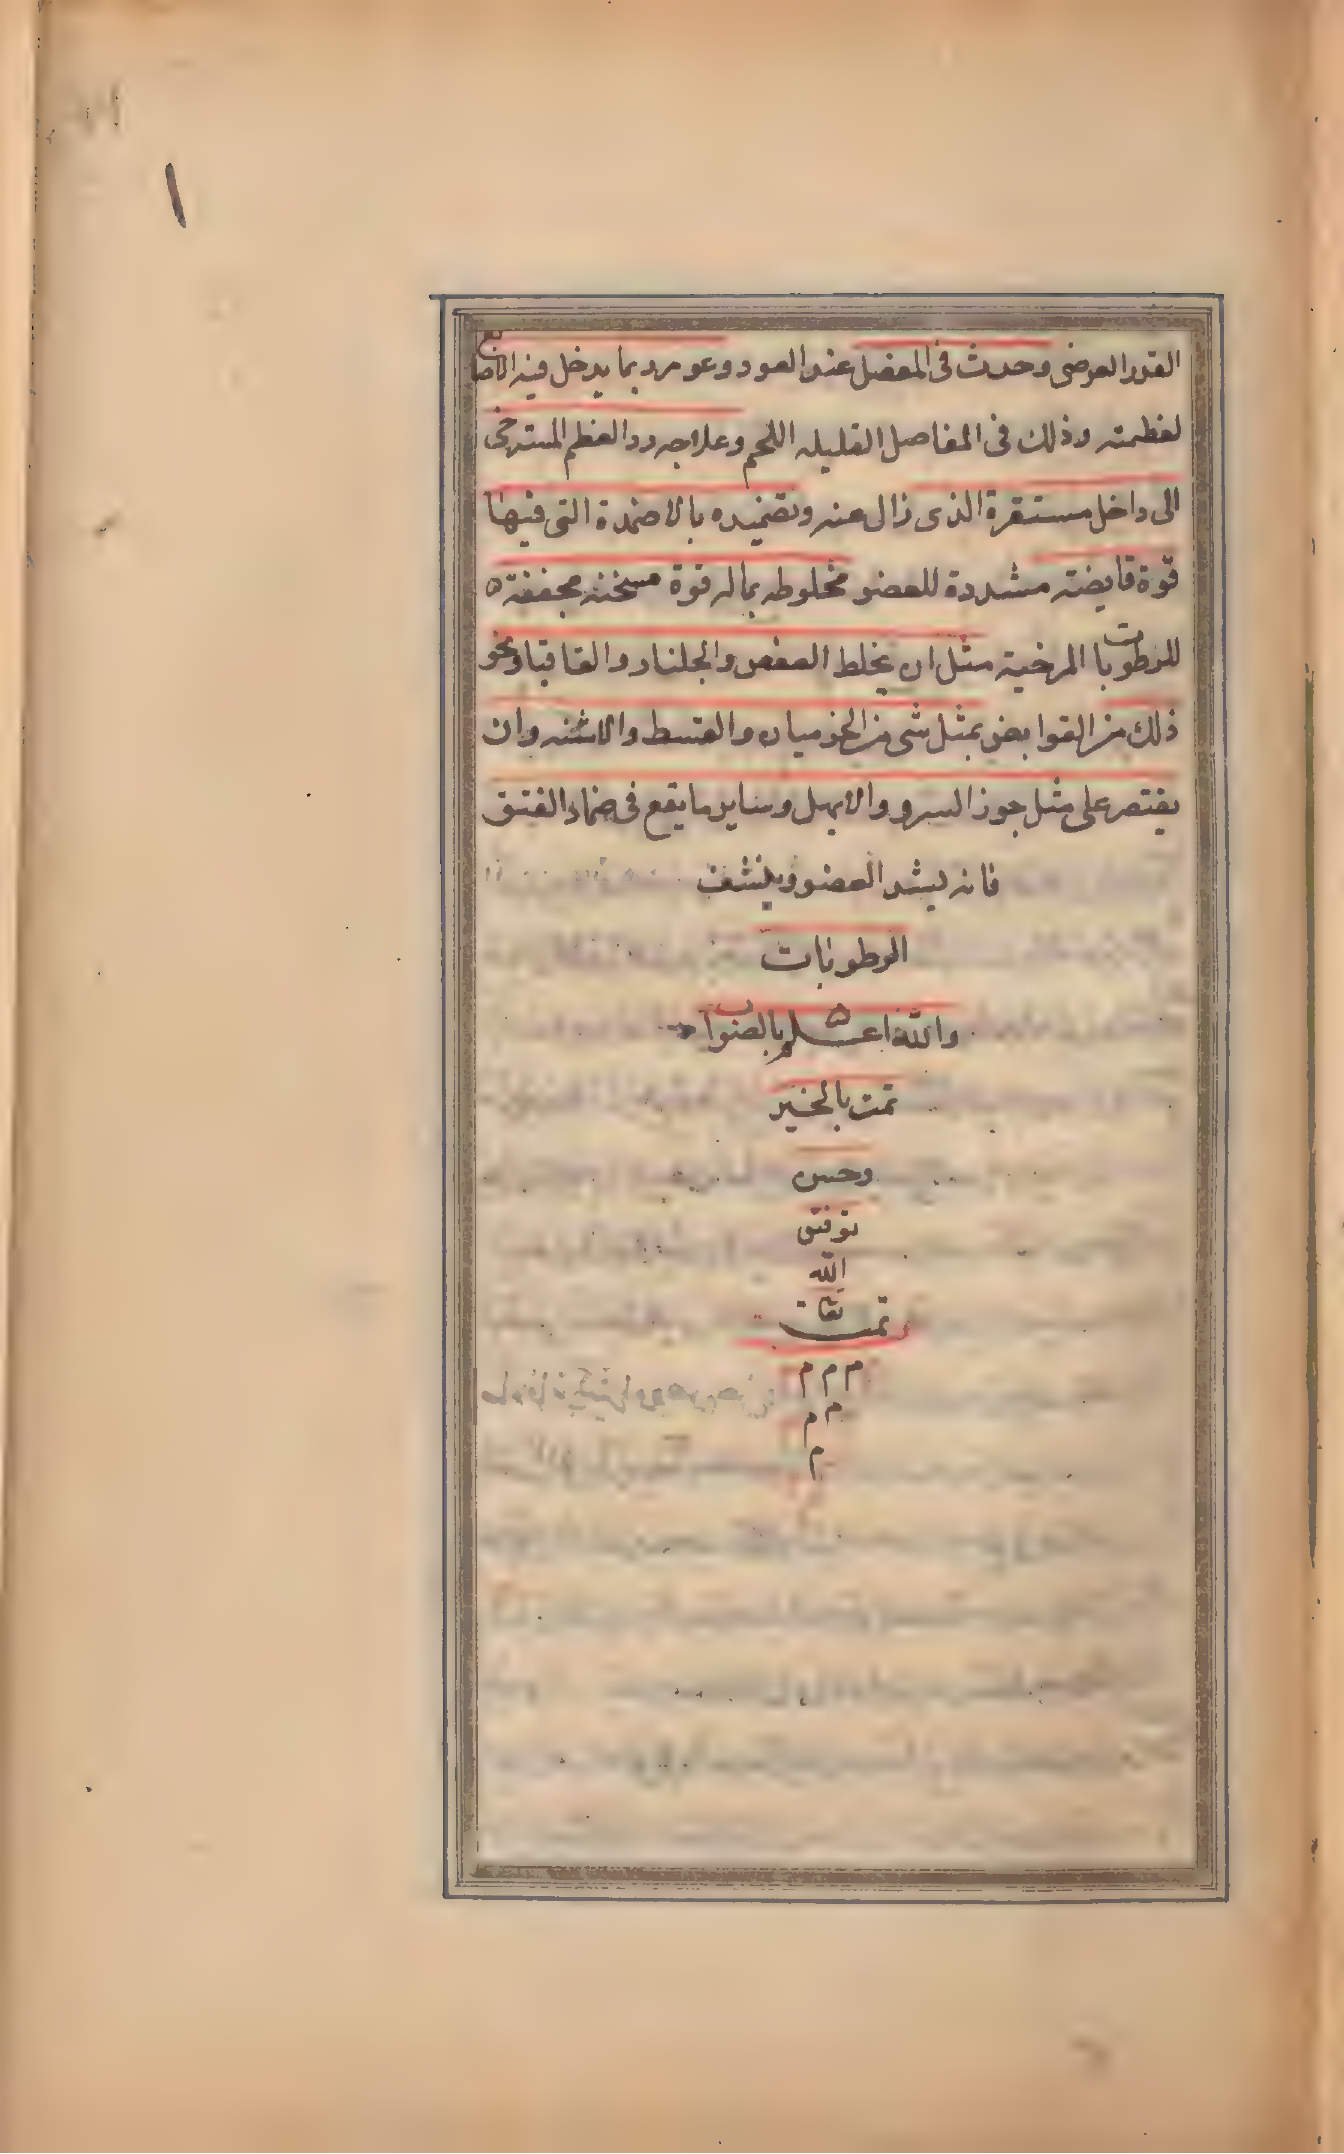 القدر العرضى وحدث فى المفصل عند العود وغور ربما يدخل فيه الاصابع
لعظمته وذلك فى المفاصل القليله اللحم وعلاجه رد العظم المسترخى
الى داخل مستقرة الذى زال عنه وتضميده بالاضمدة التى فيها
قوة قابضة مشددة للعضو مخلوطه بماله قوة مسخنة مجففة ٥
للرطوبات المرخية مثل ان يخلط العفص والجلنار والقاقيا ونحو
ذلك من القوابض بمثل شى من الجوزميان والقسط والاشنه وان
يقتصر على مثل جوز السرو والابهل وساير ما يقع فى ضماد الفتق
فانه يشد العضو وينشف
الرطوبات
والله اعلم بالصواب
تمت بالخير
وحسن
توفيق
الله
تعا
تمت
م م م
م م
م